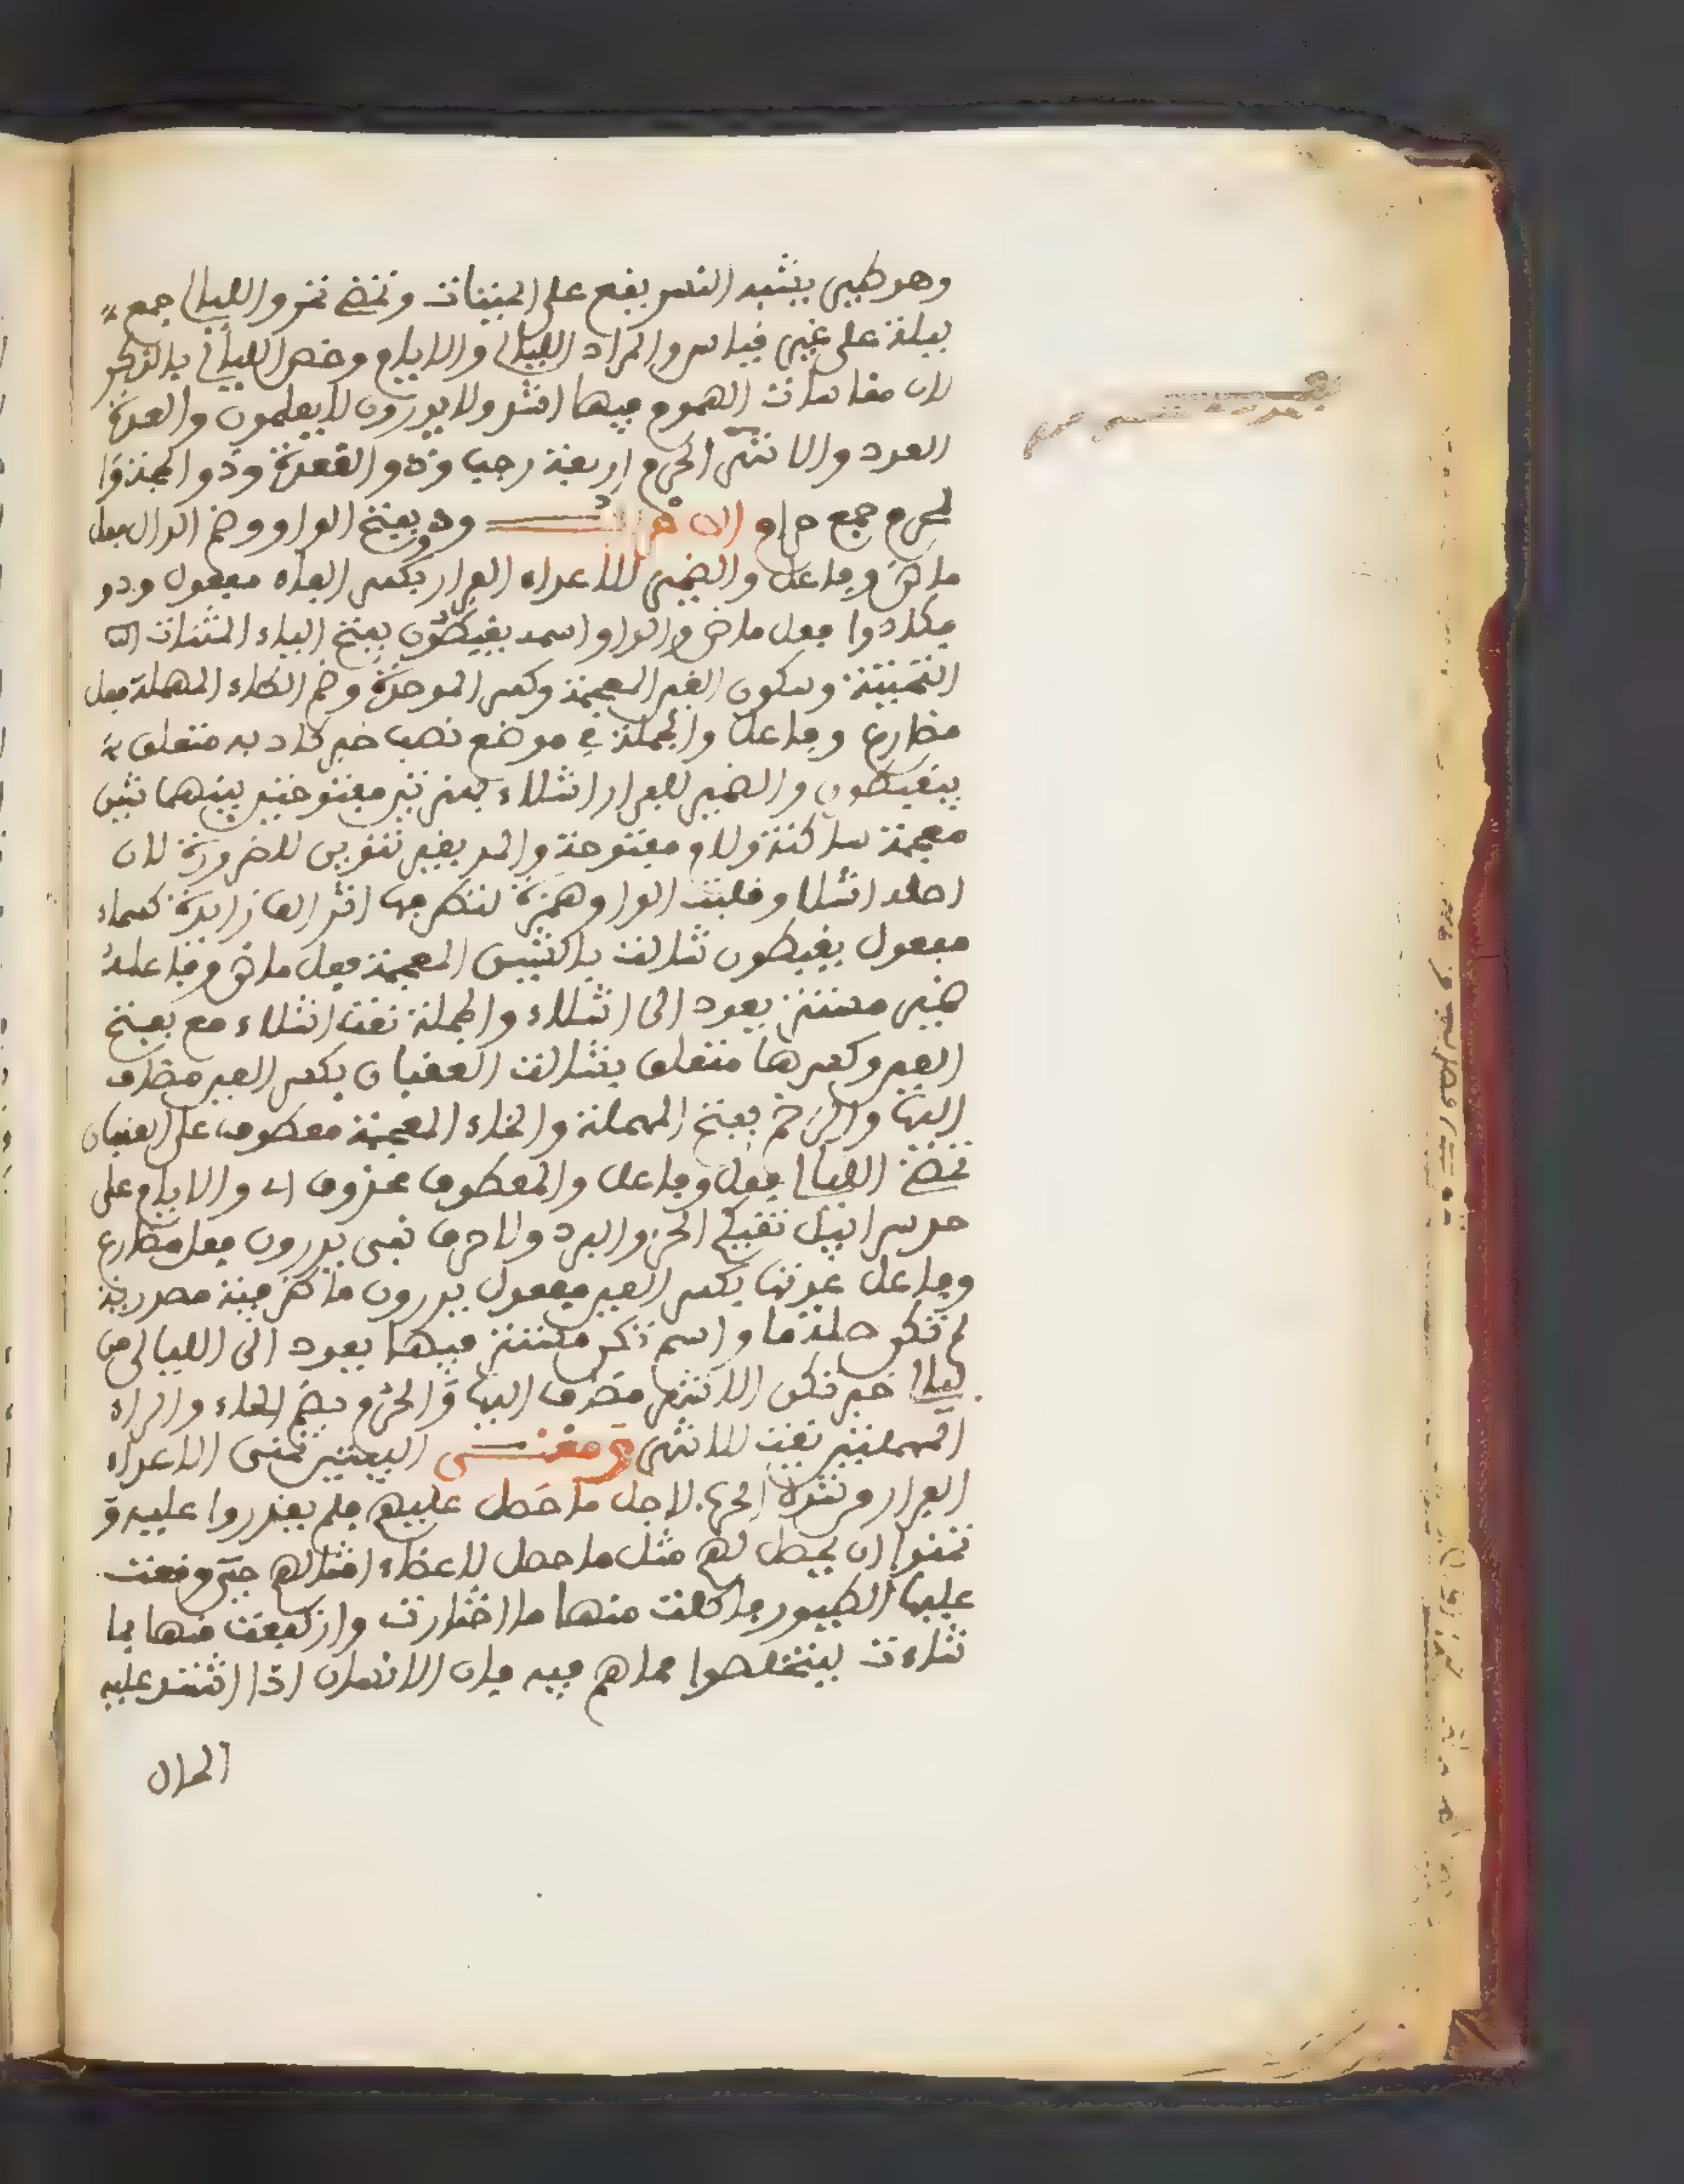 وهو طير يشبه النسر يقع على الجيفات وتمضي تمر والليالي جمع
ليلة على غير قياس والمراد الليالي والايام وخص الليالي بالذكر
لان مقاسات الهموم فيها اشد ولا يدرون لا يعلمون والعدة
العدد والاشهر الحرم اربعة رجب وذو القعدة وذو الحجة و
لحرم جمع حرام الاعراب ود بفتح الواو وضم الدال فعل
ماض وفاعل والضمير للاعداء الفرار بكسر الفاء مفعول ودو
فكادوا فعل ماض والواو اسمه يغبطون بفتح الياء المثنات
التحتية وسكون الغين المعجمة وكسر الموحدة وضم الطاء المهملة فعل
مضارع وفاعل والجملة في موضع نصب خبر كاد به متعلق
بيغبطون والضمير للفرار اشلاء بهمزتين مفتوحتين بينهما شين
معجمة ساكنة ولام مفتوحة والمد بغير تنوين للضرورة لان
اصله اشلاو قلبت الواو همزة لتطرفها اثر الف زايدة كسماء
مفعول يغبطون شالت بالشين المعجمة فعل ماض وفاعله
ضمير مستتر يعود الى اشلاء والجملة نعت اشلاء مع بفتح
العين وكسرها متعلق بشالت العقبان بكسر العين مضاف
اليها والرخم بفتح المهملة والخاء المعجمة معطوف على العقبان
تمضي الليالي فعل وفاعل والمعطوف محذوف اي والايام على
حد سرابيل تقيكم الحر والبرد ولا حرف نفي يدرون فعل مضارع
وفاعل عدتها بكسر العين مفعول يدرون ما ظرفية مصدرية
لم تكن صلة ما واسم تكن مستتر فيها يعود الى الليالي من
ليالي خبر تكن الاشهر مضاف اليها والحرم بضم الحاء والراء
المهملتين نعت للاشهر ومعنى البيتين تمنى الاعداء
الفرار من شدة الحرب لاجل ما حصل عليهم فلم يقدروا عليه و
تمنوا ان يحصل لهم مثل ما حصل لاعضاء امثالهم حتى وقعت
عليها الطيور فاكلت منها ما اختارت وارتفعت منها بما
شاءت ليتخلصوا مما هم فيه فان الانسان اذا اشتد عليه
الحال